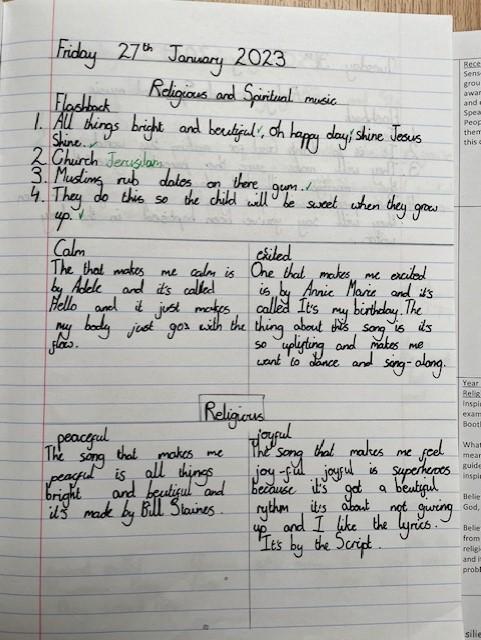 Friday 27th January 2023
Religious and Spiritual music
Flashback
1. All things bright and beutiful, Oh happy day, shine Jesus
Shine.
2. Church Jerusilam
3. Muslims rub dates on there gum.
4. They do this so the child will be sweet when they grow
up.
Calm
The that makes me calm is
by Adele and it's called
Hello and it just makes
my body just goz with the
flow.
exited
One that makes me excited
is by Annie Marie and it's
called It's my birthday. The
thing about this song is it's
so uplifting and makes me
want to dance and sing-along.
Religious
peaceful
The song that makes me
peacful is all things
bright and beutiful and
it's made by Bill Staines.
joyful
The song that makes me feel
joy-ful joyful is superheroes
because it's got a beutiful
rythm it's about not giving
up and I like the lyrics.
It's by the Script.
Rece
Sens
grou
awar
and e
Spea
Peop
them
this c
Year
Relig
Inspi
exam
Booth
What
mean
guide
inspi
Belie
God,
Belie
from
religio
and i
probl
silie